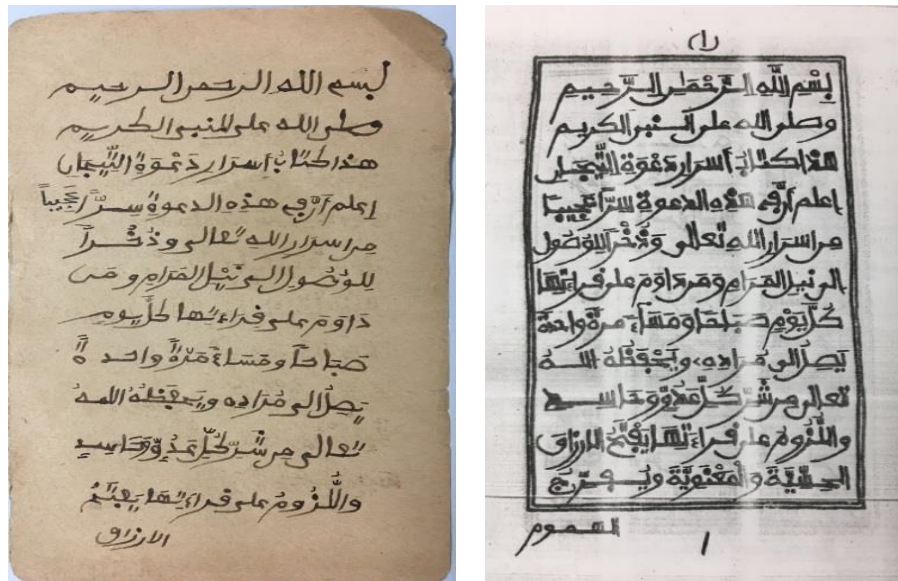 بسم الله الرحمن الرحيم
وصلى الله على النبي الكريم
هذا كتاب أسرار دَعْوَةُ التِّيجَانِ
إعلم أنّ في هذه الدعوة سِرًّا عَجِيباً
من اسرار الله تعالى وذُخْراً
للوُصُولِ الى نَيْلِ المَرَامِ ومَن
دَاوَمَ على قِرَاءَتِها كلَّ يومٍ
صَبَاحاً ومَسَاءً مَرَّةً واحدةً
يَصِلُ الى مُرَادِه ويَحفَظُهُ الله
تعالى من شَرِّ كُلِّ عَدُوٍّ وحَاسِدٍ
واللُّزُومُ على قراءَتِها يفتحُ
الارزاق
(١)
بِسْمِ اللَّهِ الرَّحْمَنِ الرَّحِيمِ
وصلى الله على النبي الكريم
هذا كتابُ أسْرَارِ دَعْوَةِ التِّيجَانِ
إعلم أنّ في هذه الدعوة سرًّا عَجِيبًا
من اسرار الله تعالى وَذُخْرًا للوُصُول
الى نيل المَرَام ومَن دَاوَمَ على قراءتها
كُلَّ يَوْمٍ صَبَاحًا ومَسَاءً مرَّةً واحدةً
يَصِلُ الى مُرَادِهِ، ويَحْفَظُهُ اللهُ
تعالى من شَرِّ كُلِّ عَدُوٍّ وَحَاسِدٍ
واللُّزُومُ على قراءَتِهَا يَفْتَحُ الارزاق
الحِسِّيَّةَ والمَعْنَوِيَّةَ ويُفَرِّجُ
الهموم
١